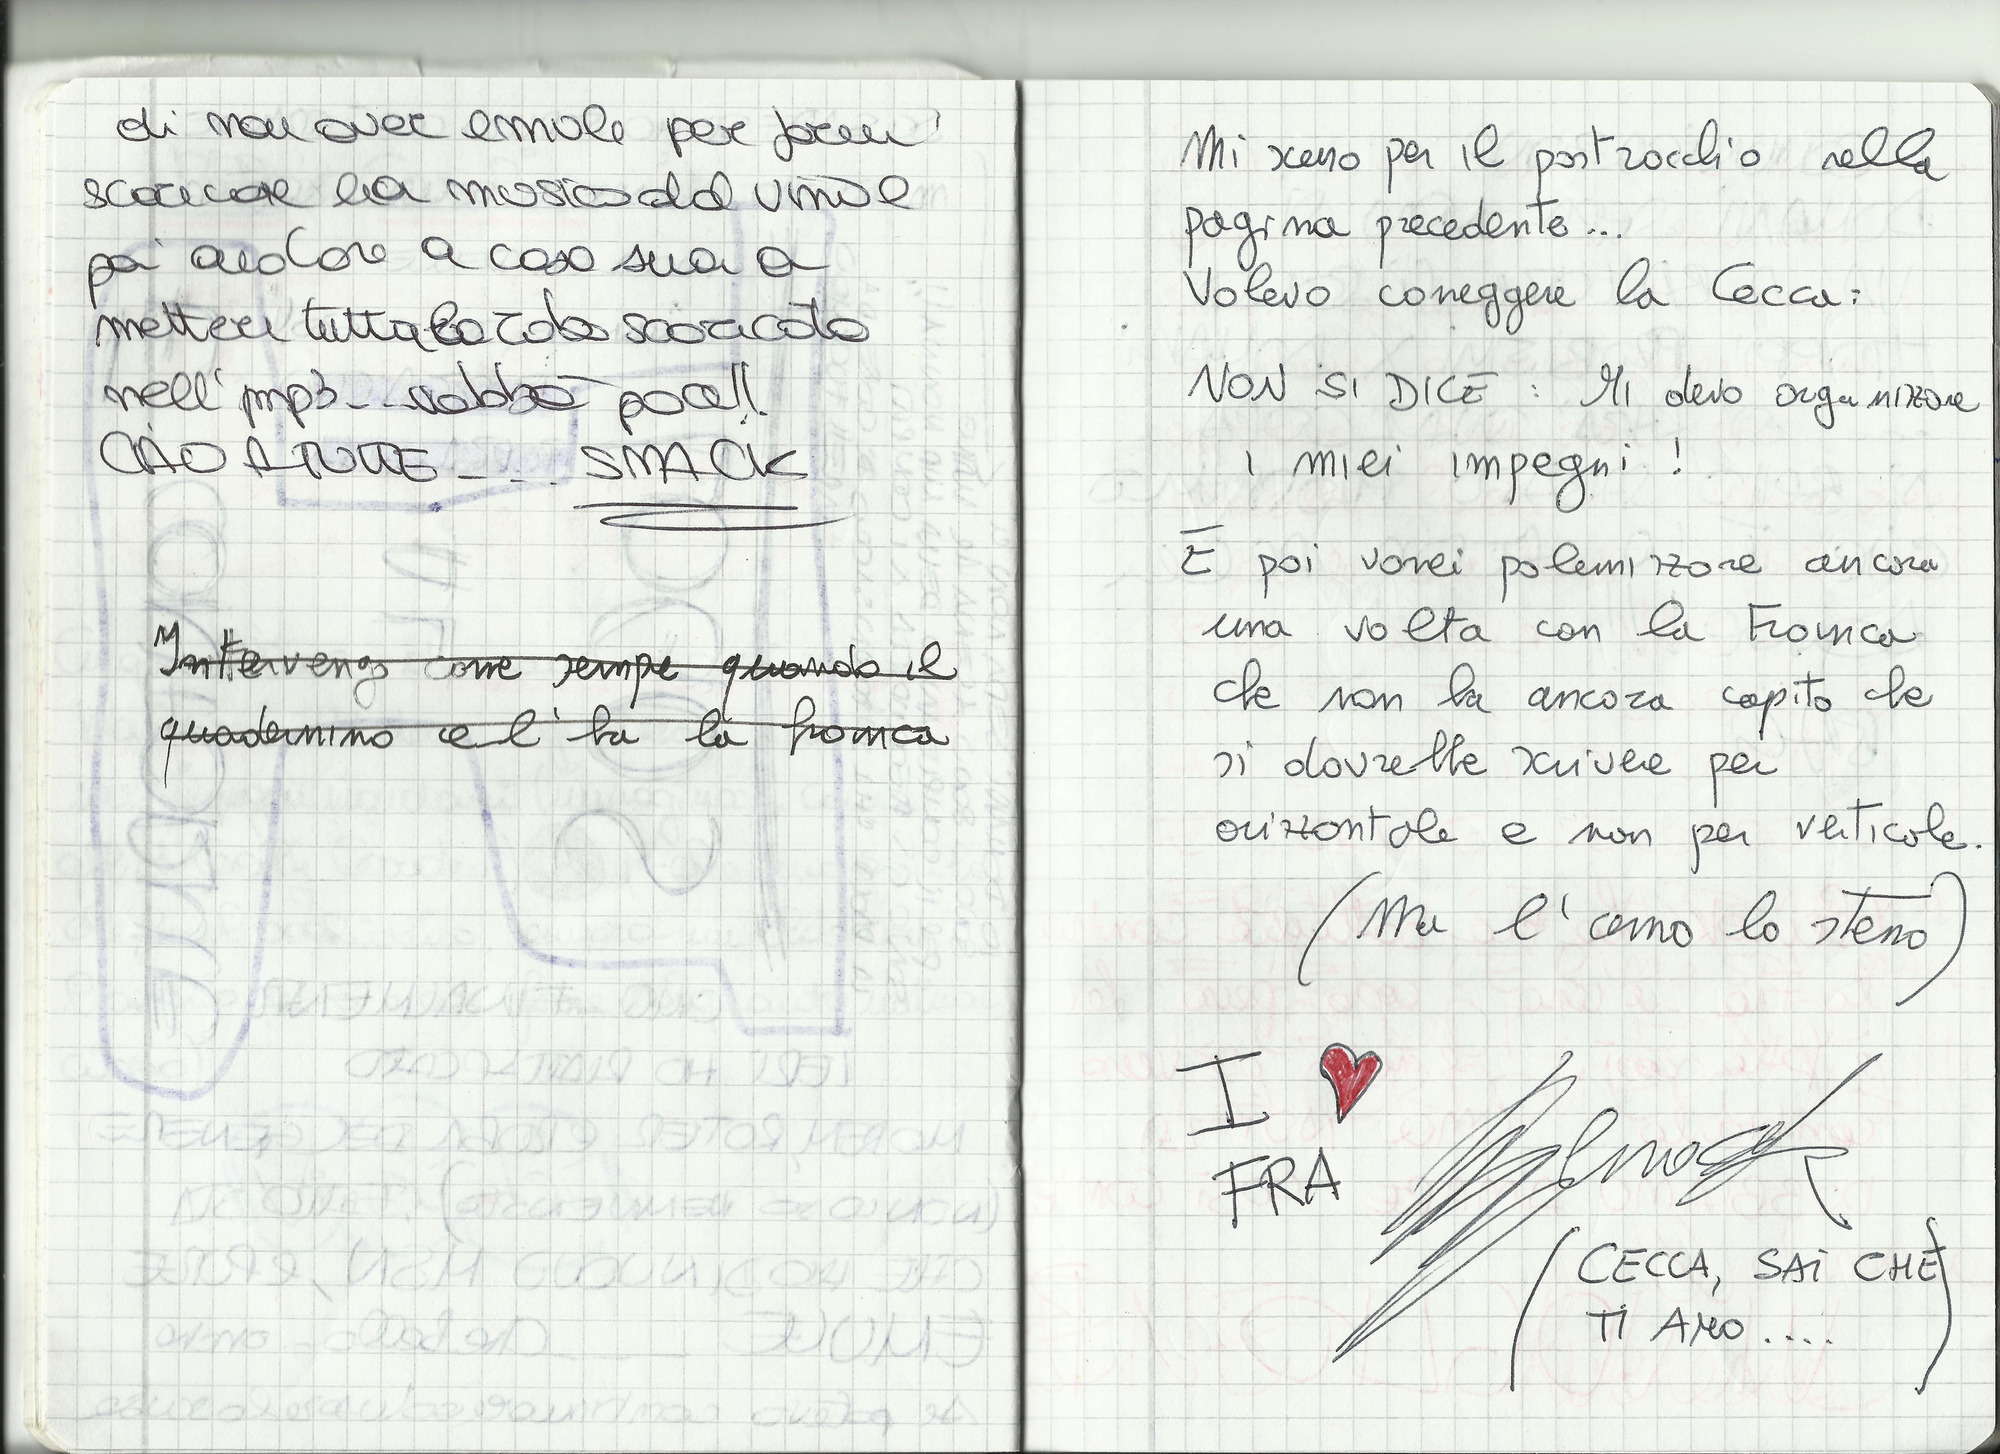 di non aver emule per farmi
scaricare la musica dal vinile
poi andare a casa sua a
mettere tutta la roba scaricata
nell' mp3... vabbò pace!!
CIAO A TUTTE .... SMACK
Intervengo come sempre quando il
quadernino ce l'ha la franca
Mi scuso per il pastrocchio nella
pagina precedente...
Volevo correggere la Cecca:
NON SI DICE : Mi devo organizzare
i miei impegni !
E poi vorrei polemizzare ancora
una volta con la Franca
che non ha ancora capito che
si dovrebbe scrivere per
orizzontale e non per verticale.
(Ma l'amo lo stesso)
I ♥
FRA
(CECCA, SAI CHE
TI AMO ....)